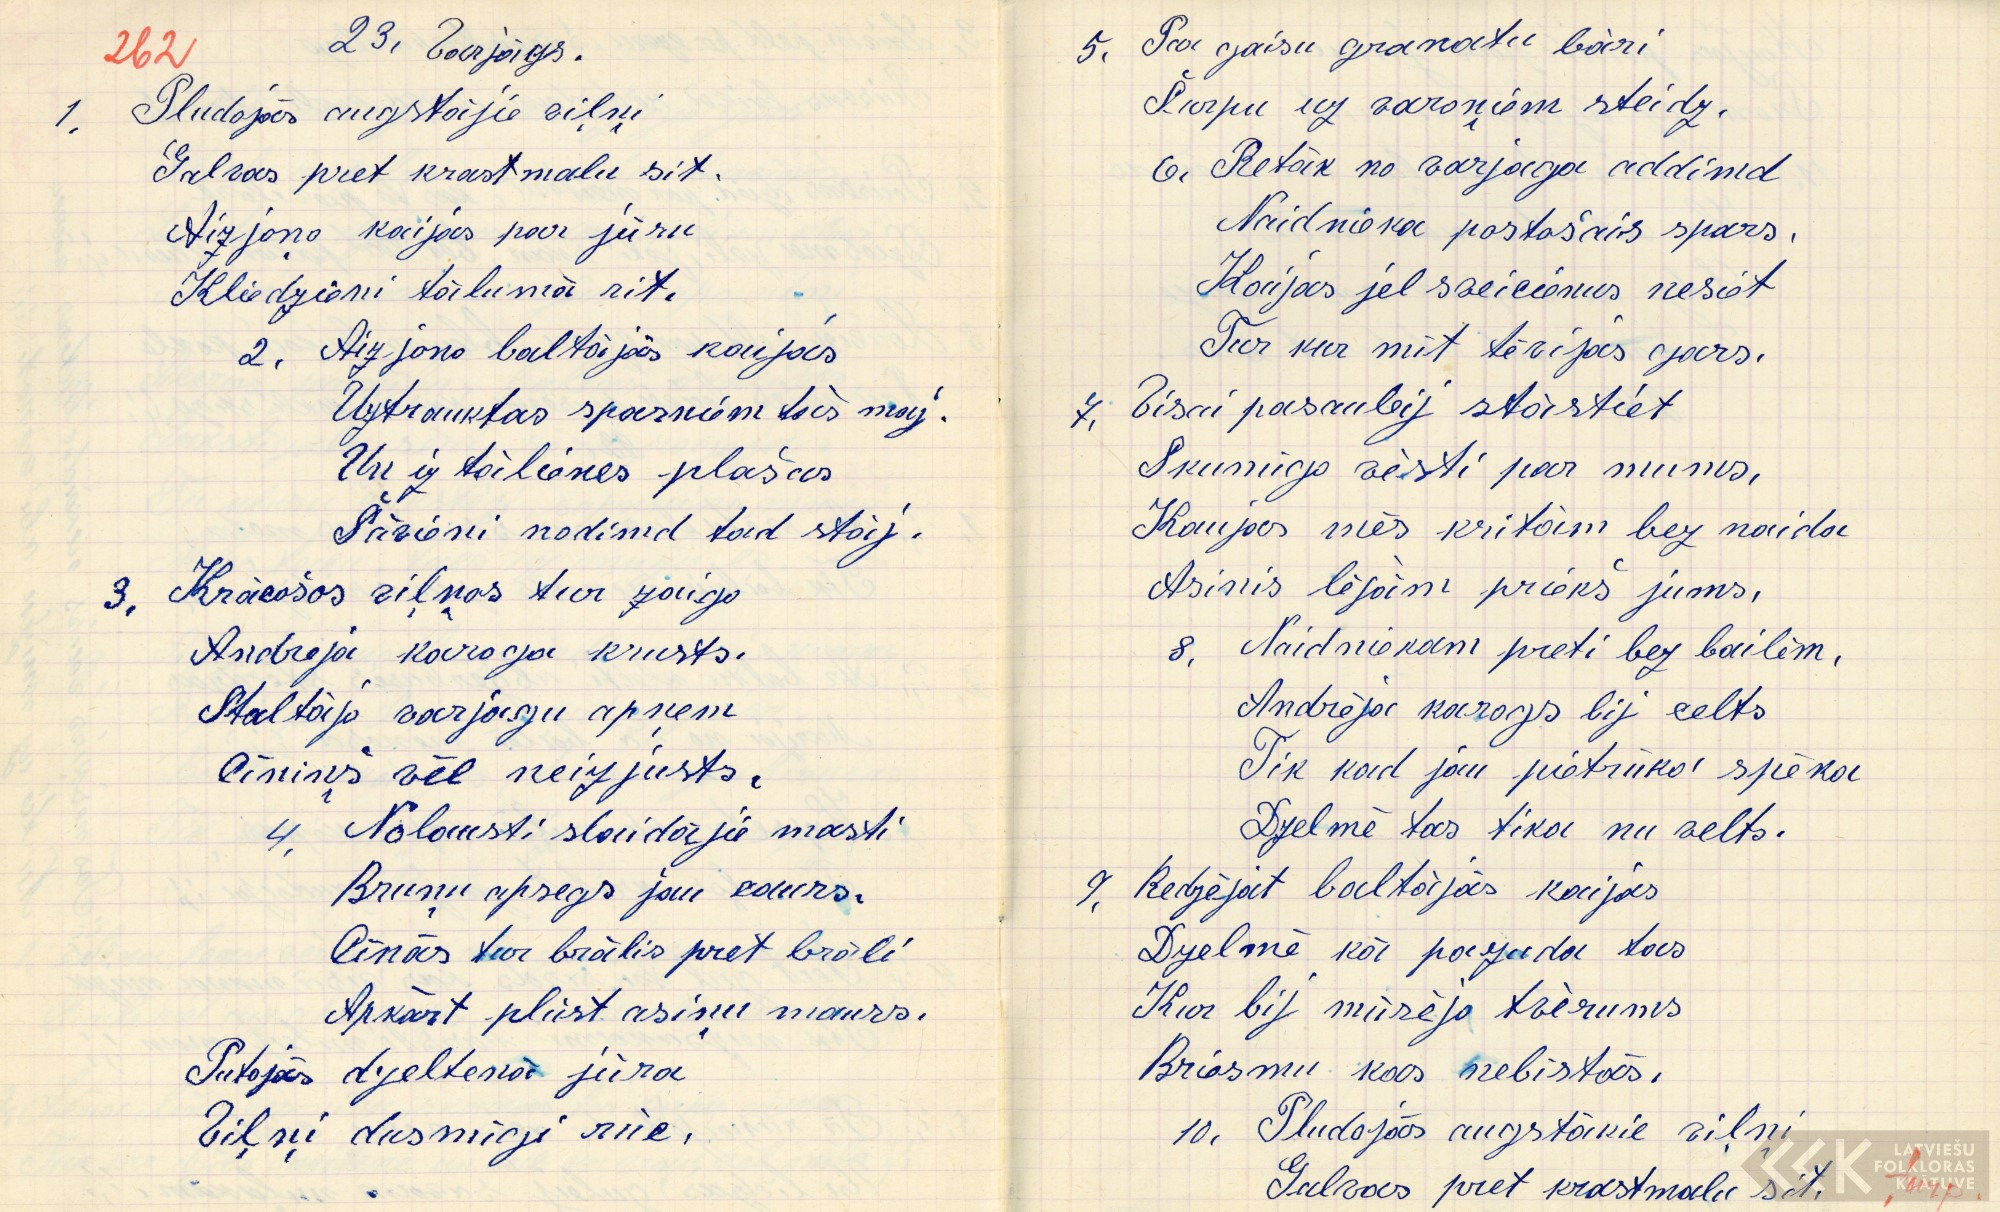 262
23. Varjāgs.
1. Pludojās augstājie viļņi
Galvas pret krastmalu sit.
Aizjoņo kaijas par jūru
Kliedzieni tālumā rit.
2. Aizjono baltājās kaijas
Uztrauktas sparniem tās māj.
Un iz tālienes plašas
Šāvieni nodimd tad stāj.
3. Krācošos viļņos tur zaigo
Andreja karoga krusts.
Staltājo varjagu apņem
Cīniņš vēl neizjusts.
4. Nolausti slaidājie masti
Bruņu apsegs jau caurs.
Cīnās tur brālis pret brāli
Apkārt plūst asiņu maurs.
Putojās dzeltenā jūra
Viļņi dusmīgi rūc.
5. Pa gaisu granatu bāri
Šurpu uz varoņiem steidz.
6. Retāk no varjaga addimd
Naidnieka postošais spars.
Kaijas jel sveicienus nesiet
Tur kur mīt tēvijas gars.
7. Visai pasauleij stāstiet
Skumīgo vēsti par mums.
Kaujas mēs kritām bez naida
Asinis lējām priekš jums.
8. Naidniekam preti bez bailēm.
Andrēja karogs bij celts
Tik kad jau pietrūka spēka
Dzelmē tas tika nu velts.
9. Redzējāt baltājās kaijas
Dzelmē kā pazuda tas
Kur bij mūsējo tvērums
Briesmu kas nebistās.
10. Pludojās augstākie viļņi
Galvas pret krastmalu sit.
LATVIEŠU
FOLKLORAS
KRĀTUVE